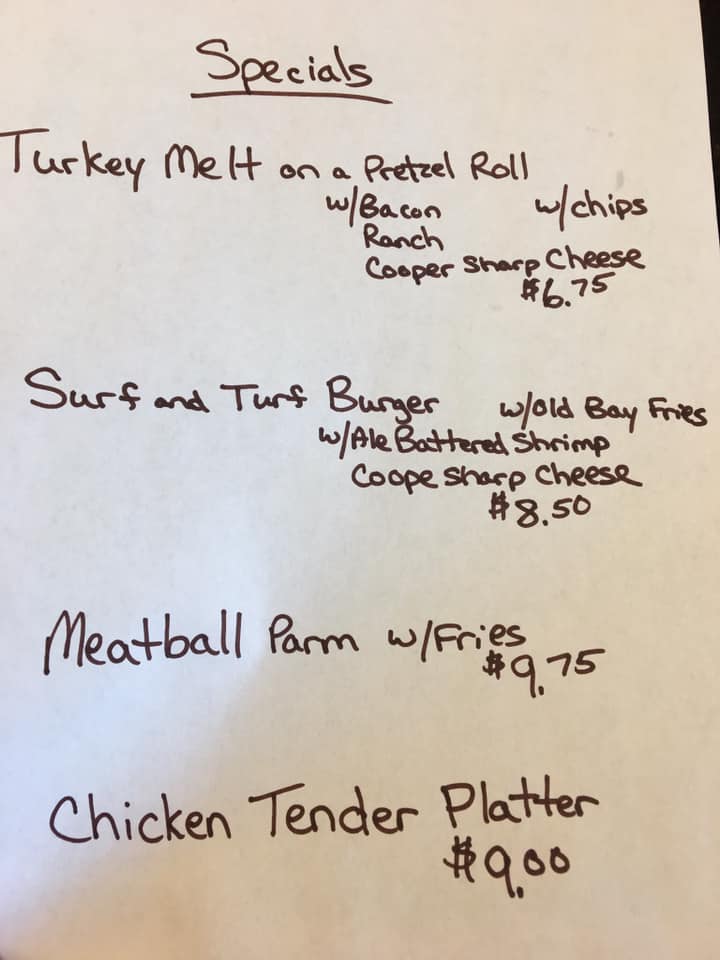 Specials
Turkey Melt on a Pretzel Roll
w/Bacon w/chips
Ranch
Cooper Sharp Cheese
$6.75
Surf and Turf Burger w/Old Bay Fries
w/Ale Battered Shrimp
Coope Sharp Cheese
$8.50
Meatball Parm w/Fries
$9.75
Chicken Tender Platter
$9.00